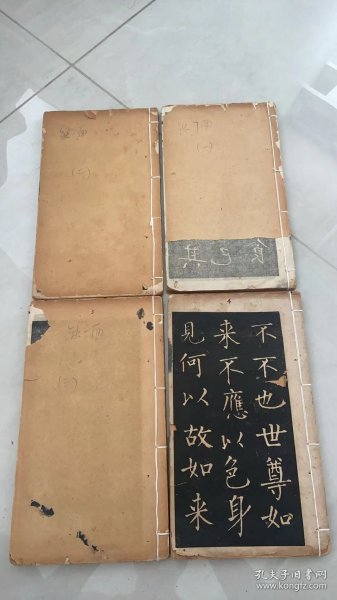 (二)
(一)
食
已
其
3
(三)
4
不不也世尊如
来不應以色身
見何以故如来
孔夫子旧书网